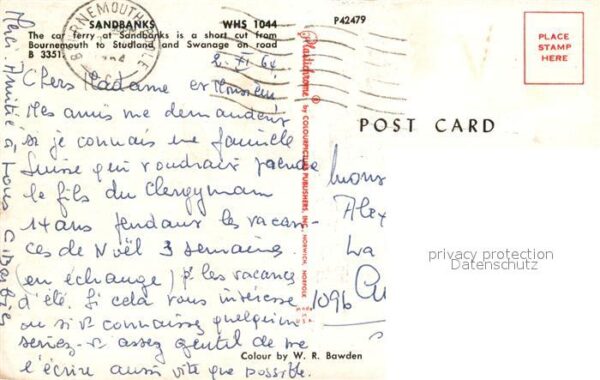 SANDBANKS WHS 1044
The car ferry at Sandbanks is a short cut from
Bournemouth to Studland and Swanage on road
B 3351.
P42479
PLACE
STAMP
HERE
POST CARD
Plastichrome ® by COLOURPICTURE PUBLISHERS, INC., NORWICH, NORFOLK
2. XI 64
Chers Madame et Monsieur!
Mes amis me demandent
si je connais une famille
Suisse qui voudrait
le fils du Clergyman
14 ans pendant les vacan-
ces de Noël 3 semaines
(en échange) p. les vacances
d'été. Si cela vous intéresse
ou si v. connaissez quelqu'un
seriez-v. assez gentil de me
l'écrire aussi vite que possible.
Merci. Amitié à tous
Mons
Alex
La
1096 Cu
privacy protection
Datenschutz
Colour by W. R. Bawden